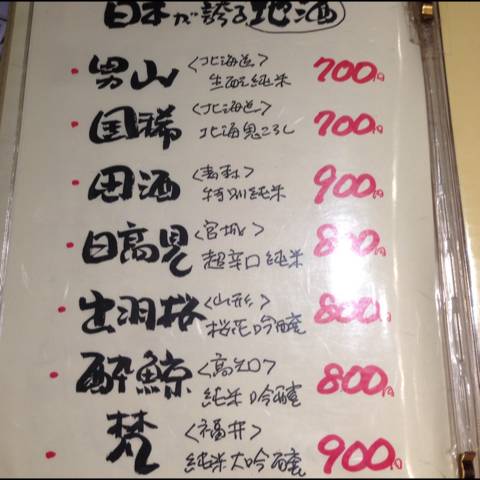 日本が誇る地酒
・男山 <北海道> 生酛純米 700円
・国稀 <北海道> 北海鬼ころし 700円
・田酒 <青森> 特別純米 900円
・日高見 <宮城> 超辛口純米 800円
・出羽桜 <山形> 桜花吟醸 800円
・酔鯨 <高知> 純米吟醸 800円
・梵 <福井> 純米大吟醸 900円